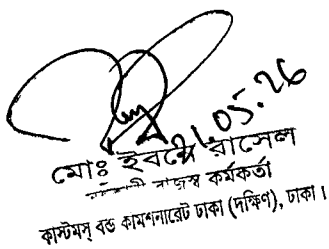 21.05.26
মোঃ ইবনে রাসেল
রাজস্ব কর্মকর্তা
কাস্টমস্ বন্ড কমিশনারেট ঢাকা (দক্ষিণ), ঢাকা।